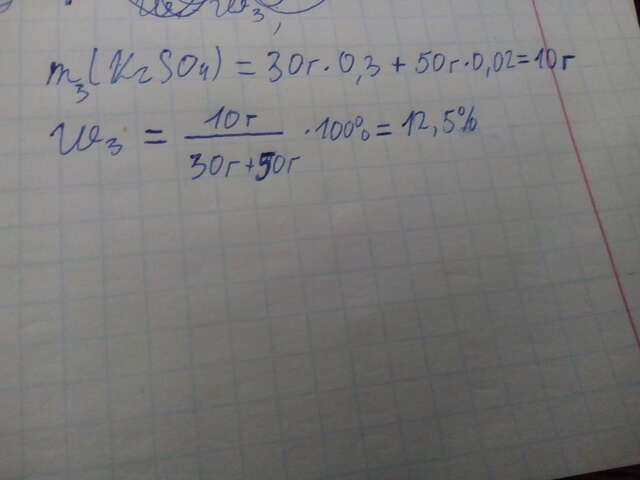 W₃,
m₃(K₂SO₄) = 30г · 0,3 + 50г · 0,02 = 10г
W₃ = 10г / 30г + 50г · 100% = 12,5%